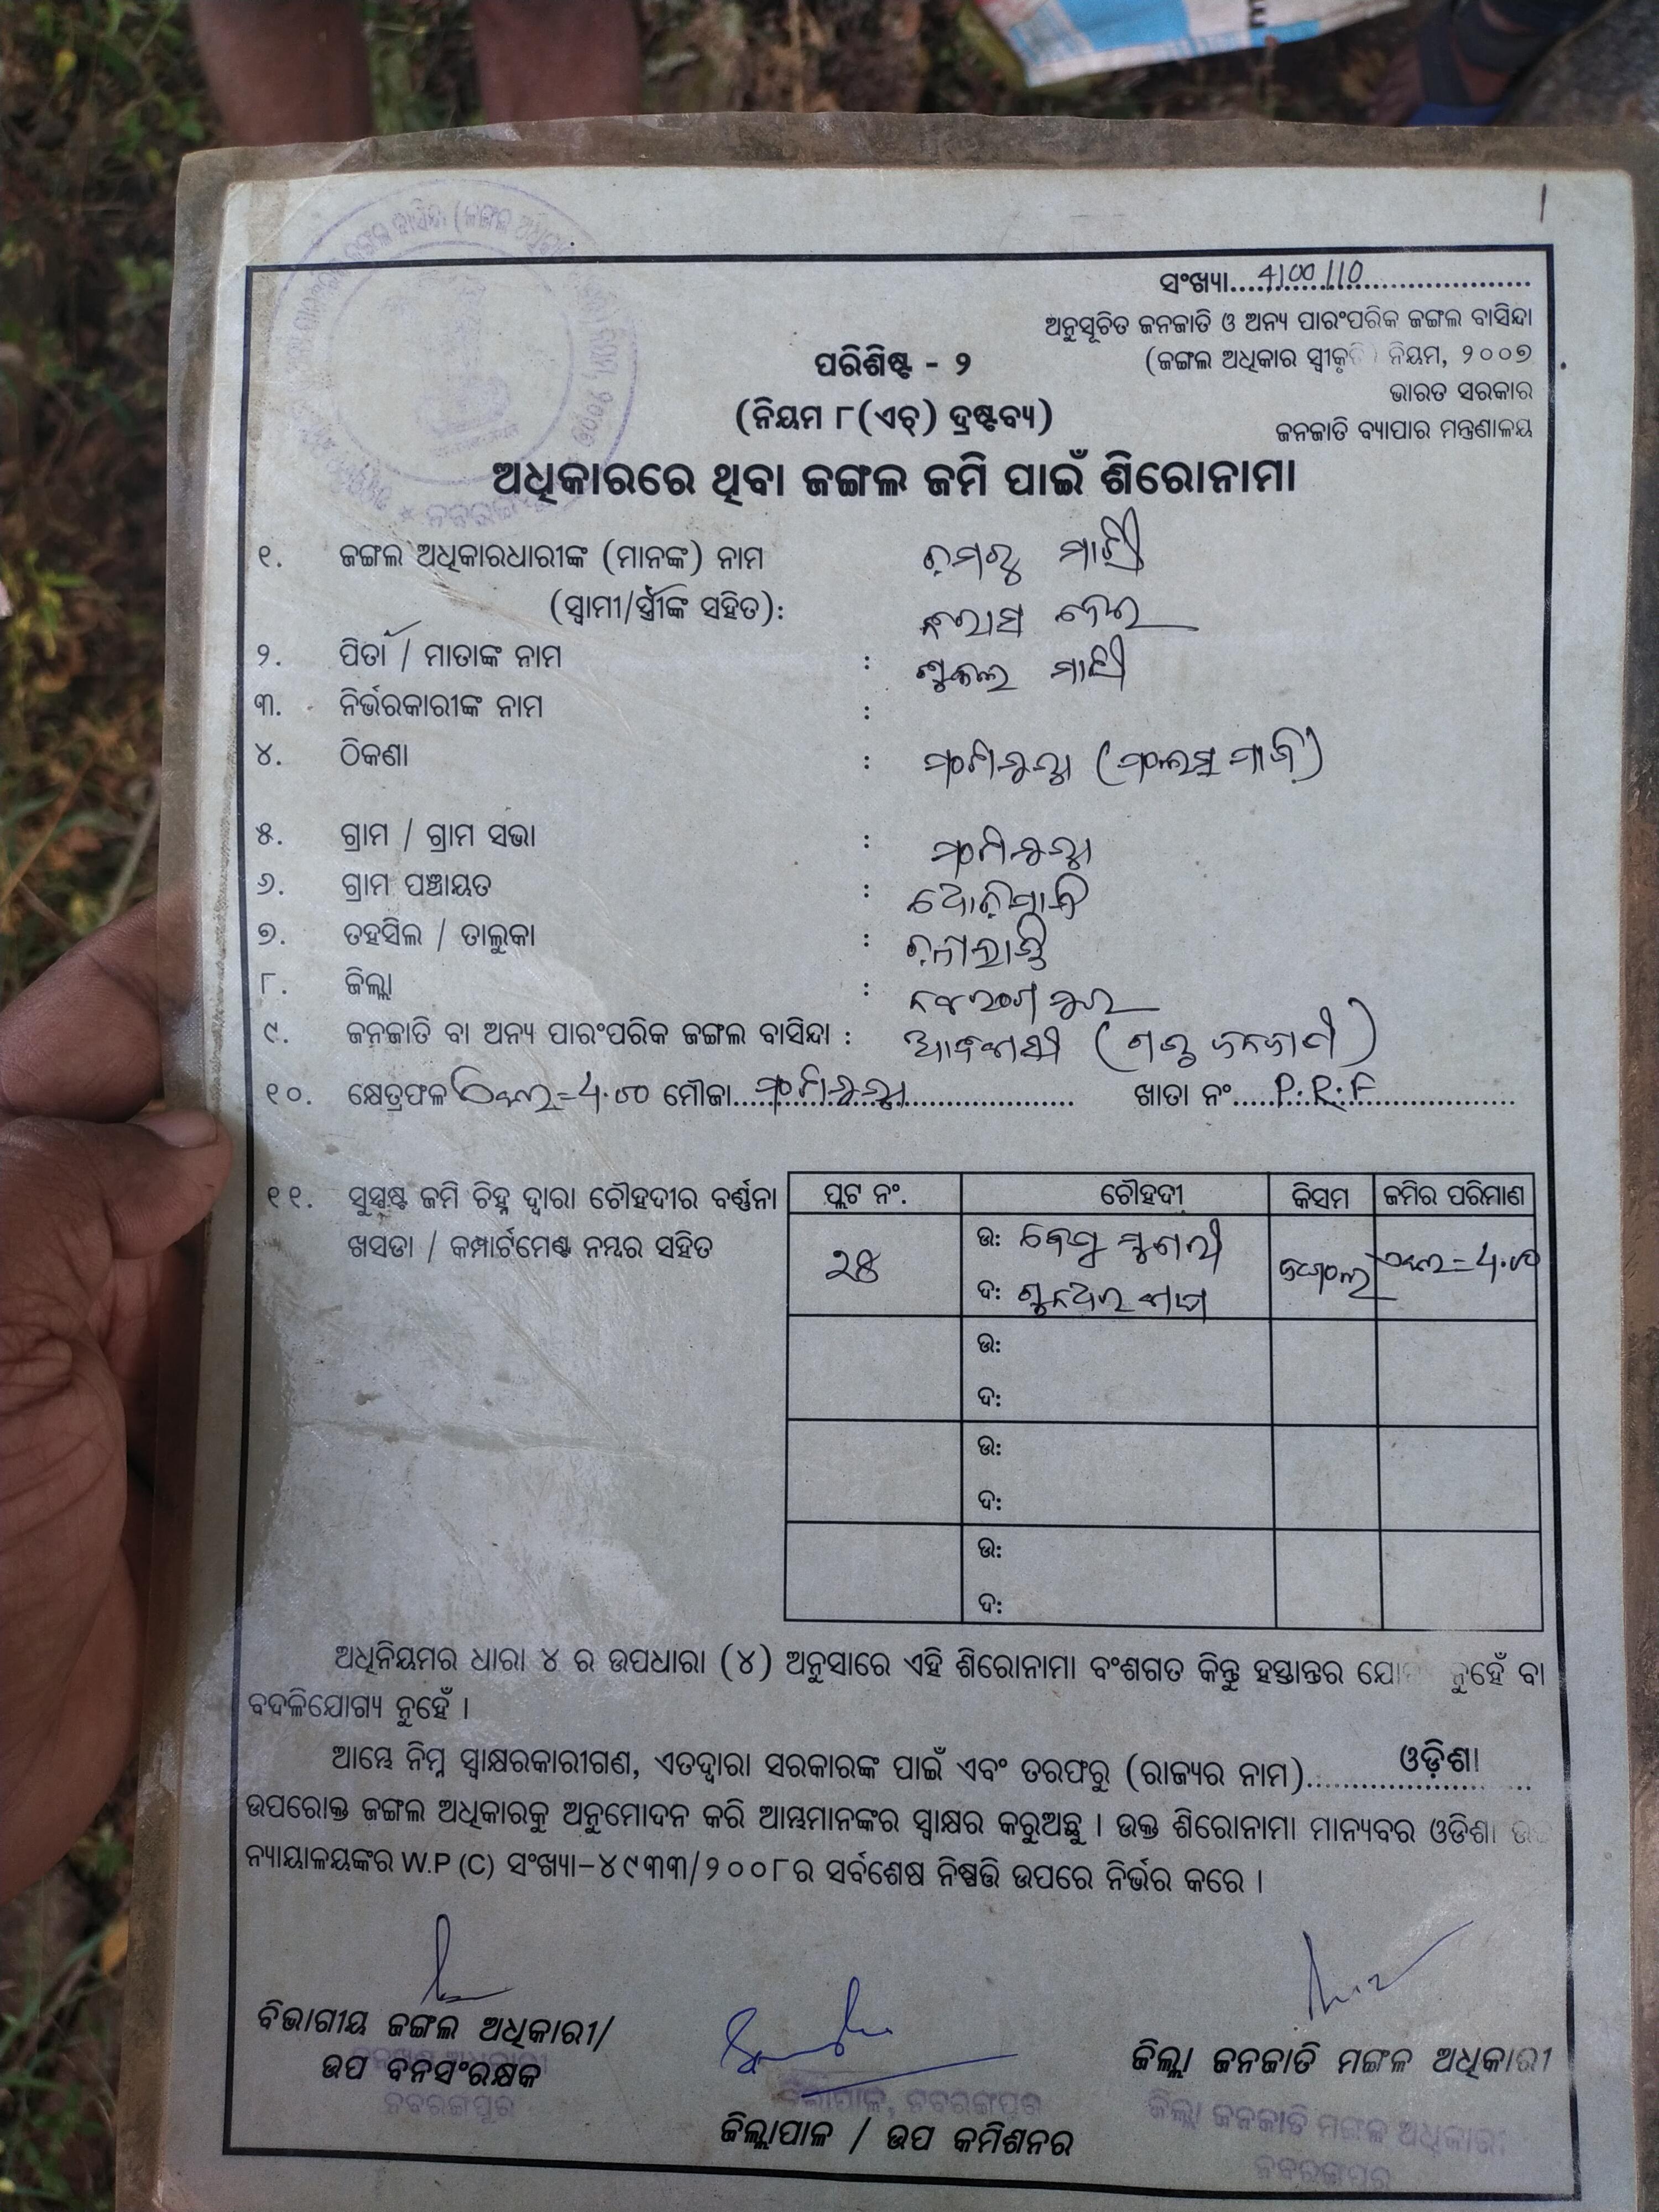 ସଂଖ୍ୟା.....4100/10.....
ଅନୁସୂଚିତ ଜନଜାତି ଓ ଅନ୍ୟ ପାରଂପରିକ ଜଙ୍ଗଲ ବାସିନ୍ଦା
(ଜଙ୍ଗଲ ଅଧିକାର ସ୍ୱୀକୃତି) ନିୟମ, ୨୦୦୭
ଭାରତ ସରକାର
ଜନଜାତି ବ୍ୟାପାର ମନ୍ତ୍ରଣାଳୟ
ପରିଶିଷ୍ଟ - ୨
(ନିୟମ ୮(ଏଚ୍) ଦ୍ରଷ୍ଟବ୍ୟ)
ଅଧିକାରରେ ଥିବା ଜଙ୍ଗଲ ଜମି ପାଇଁ ଶିରୋନାମା
୧. ଜଙ୍ଗଲ ଅଧିକାରଧାରୀଙ୍କ (ମାନଙ୍କ) ନାମ ଡମରୁ ମାଝୀ
(ସ୍ୱାମୀ/ସ୍ତ୍ରୀଙ୍କ ସହିତ):
୨. ପିତା / ମାତାଙ୍କ ନାମ : ଶୁକଲ ମାଝୀ
୩. ନିର୍ଭରକାରୀଙ୍କ ନାମ :
୪. ଠିକଣା :
୫. ଗ୍ରାମ / ଗ୍ରାମ ସଭା :
୬. ଗ୍ରାମ ପଞ୍ଚାୟତ :
୭. ତହସିଲ / ତାଲୁକା :
୮. ଜିଲ୍ଲା : ନବରଂଗପୁର
୯. ଜନଜାତି ବା ଅନ୍ୟ ପାରଂପରିକ ଜଙ୍ଗଲ ବାସିନ୍ଦା : ଆଦିବାସୀ (ଗଣ୍ଡ ଜନଜାତି)
୧୦. କ୍ଷେତ୍ରଫଳ 4.00 ମୌଜା..... ଖାତା ନଂ.....P.R.F.....
୧୧. ସୁସ୍ପଷ୍ଟ ଜମି ଚିହ୍ନ ଦ୍ୱାରା ଚୌହଦୀର ବର୍ଣ୍ଣନା
ଖସଡା / କମ୍ପାର୍ଟମେଣ୍ଟ ନମ୍ବର ସହିତ
ପ୍ଲଟ ନଂ. ଚୌହଦୀ କିସମ ଜମିର ପରିମାଣ
୨୫ ଉ: ଜଙ୍ଗଲ 4.00
ଦ:
ଉ:
ଦ:
ଉ:
ଦ:
ଉ:
ଦ:
ଅଧିନିୟମର ଧାରା ୪ ର ଉପଧାରା (୪) ଅନୁସାରେ ଏହି ଶିରୋନାମା ବଂଶଗତ କିନ୍ତୁ ହସ୍ତାନ୍ତର ନୁହେଁ ବା
ବଦଳିଯୋଗ୍ୟ ନୁହେଁ ।
ଆମ୍ଭେ ନିମ୍ନ ସ୍ୱାକ୍ଷରକାରୀଗଣ, ଏତଦ୍ୱାରା ସରକାରଙ୍କ ପାଇଁ ଏବଂ ତରଫରୁ (ରାଜ୍ୟର ନାମ).....ଓଡ଼ିଶା.....
ଉପରୋକ୍ତ ଜଙ୍ଗଲ ଅଧିକାରକୁ ଅନୁମୋଦନ କରି ଆମ୍ଭମାନଙ୍କର ସ୍ୱାକ୍ଷର କରୁଅଛୁ । ଉକ୍ତ ଶିରୋନାମା ମାନ୍ୟବର ଓଡିଶା ଉଚ୍ଚ
ନ୍ୟାୟାଳୟଙ୍କର W.P (C) ସଂଖ୍ୟା-୪୯୩୩/୨୦୦୮ର ସର୍ବଶେଷ ନିଷ୍ପତ୍ତି ଉପରେ ନିର୍ଭର କରେ ।
ବିଭାଗୀୟ ଜଙ୍ଗଲ ଅଧିକାରୀ/
ଉପ ବନସଂରକ୍ଷକ
ନବରଙ୍ଗପୁର
ଜିଲ୍ଲାପାଳ, ନବରଙ୍ଗପୁର
ଜିଲ୍ଲାପାଳ / ଉପ କମିଶନର
ଜିଲ୍ଲା ଜନଜାତି ମଙ୍ଗଳ ଅଧିକାରୀ
ଜିଲ୍ଲା ଜନଜାତି ମଙ୍ଗଳ ଅଧିକାରୀ
ନବରଙ୍ଗପୁର